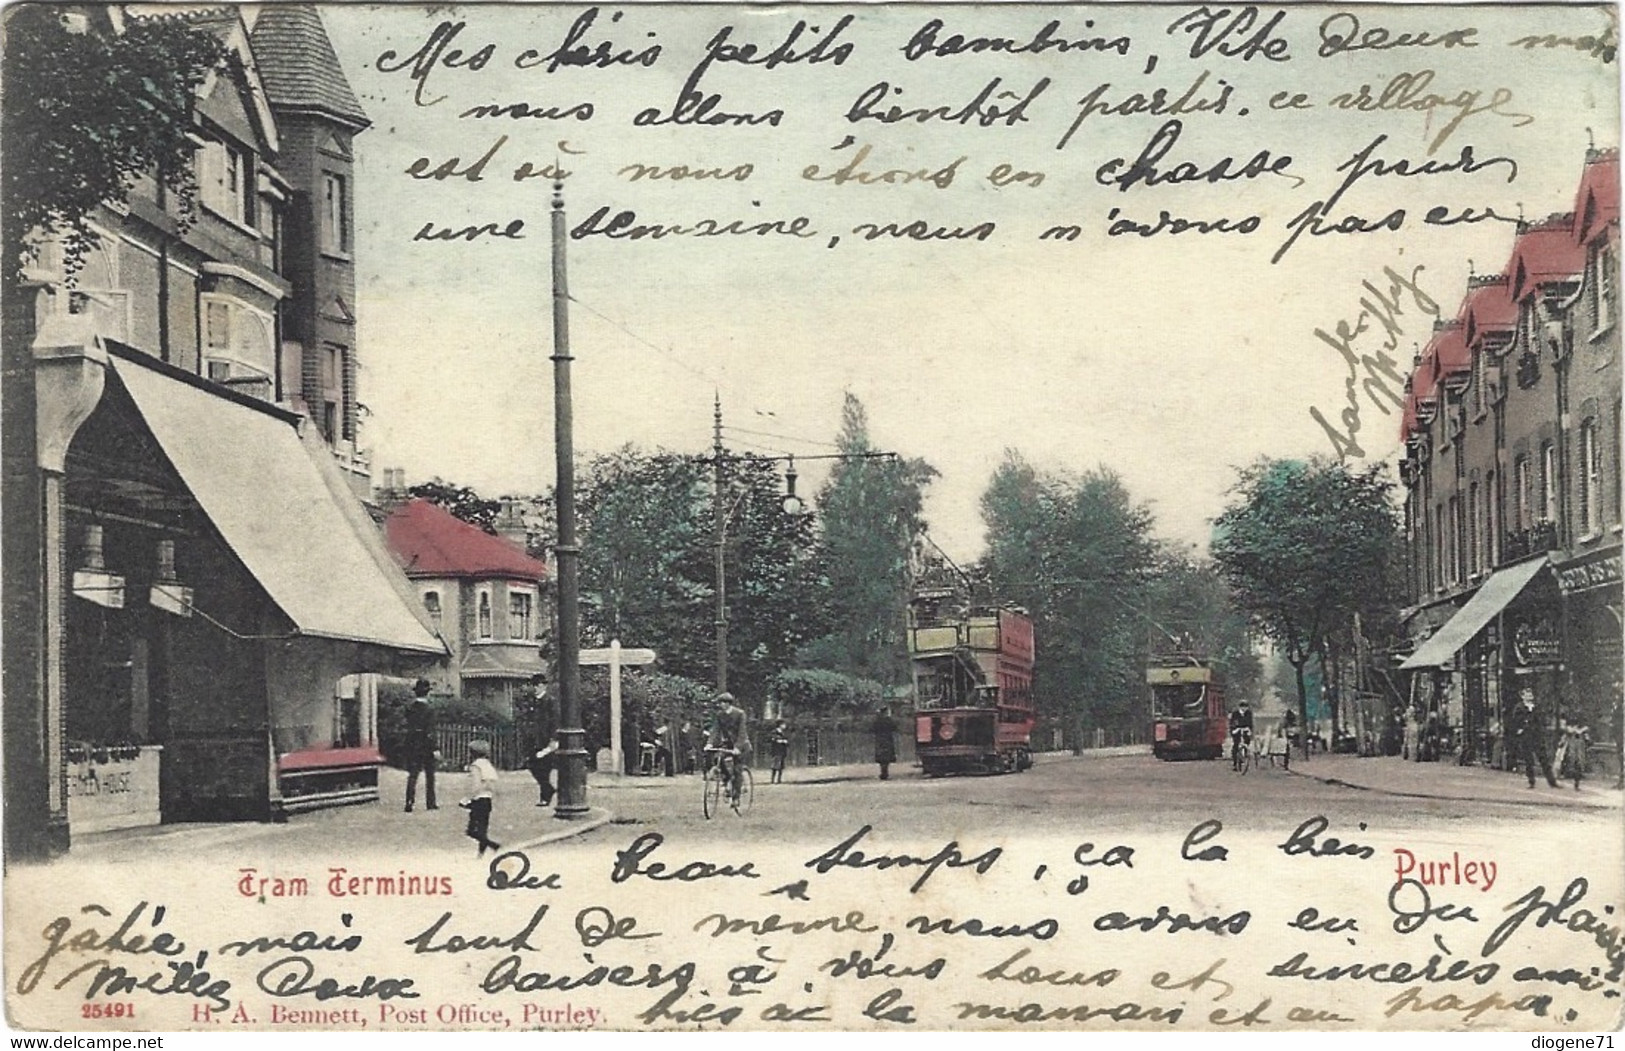 Mes chéris petits bambins, Vite deux mots
nous allons bientôt partir. ce village
est où nous étions en chasse, pour
une semaine, nous n'avons pas eu
tante Mitthy
ERDEEN·HOUSE
Tram Terminus
Purley
Du beau temps, ça la bien
gâtée, mais tout de même, nous avons eu du plaisir
Milles doux baisers à vous tous et sincères ami-
tiés à la maman et au papa.
25491 H. A. Bennett, Post Office, Purley.
diogene71